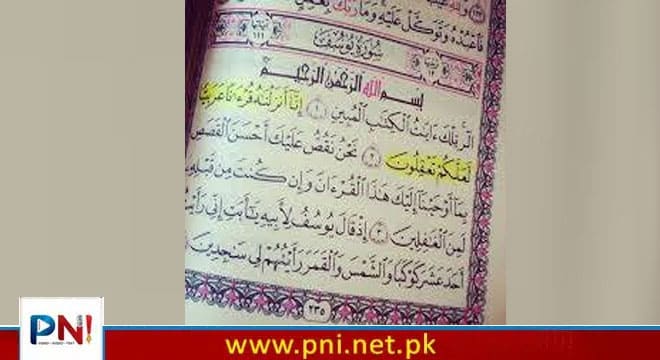 فَاعْبُدْهُ وَتَوَكَّلْ عَلَيْهِ وَمَا رَبُّكَ
١١١ سُورَةُ يُوسُفَ ١٢
بِسْمِ اللَّهِ الرَّحْمَٰنِ الرَّحِيمِ
الٓر تِلْكَ ءَايَٰتُ الْكِتَٰبِ الْمُبِينِ ١ إِنَّآ أَنزَلْنَٰهُ قُرْءَٰنًا عَرَبِيًّا
لَّعَلَّكُمْ تَعْقِلُونَ ٢ نَحْنُ نَقُصُّ عَلَيْكَ أَحْسَنَ الْقَصَصِ
بِمَآ أَوْحَيْنَآ إِلَيْكَ هَٰذَا الْقُرْءَانَ وَإِن كُنتَ مِن قَبْلِهِۦ
لَمِنَ الْغَٰفِلِينَ ٣ إِذْ قَالَ يُوسُفُ لِأَبِيهِ يَٰٓأَبَتِ إِنِّي رَأَيْتُ
أَحَدَ عَشَرَ كَوْكَبًا وَالشَّمْسَ وَالْقَمَرَ رَأَيْتُهُمْ لِي سَٰجِدِينَ
٢٣٥
PNI!
VIDEO - AUDIO - TEXT
www.pni.net.pk